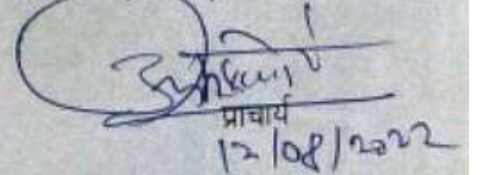 प्राचार्य
12/08/2022